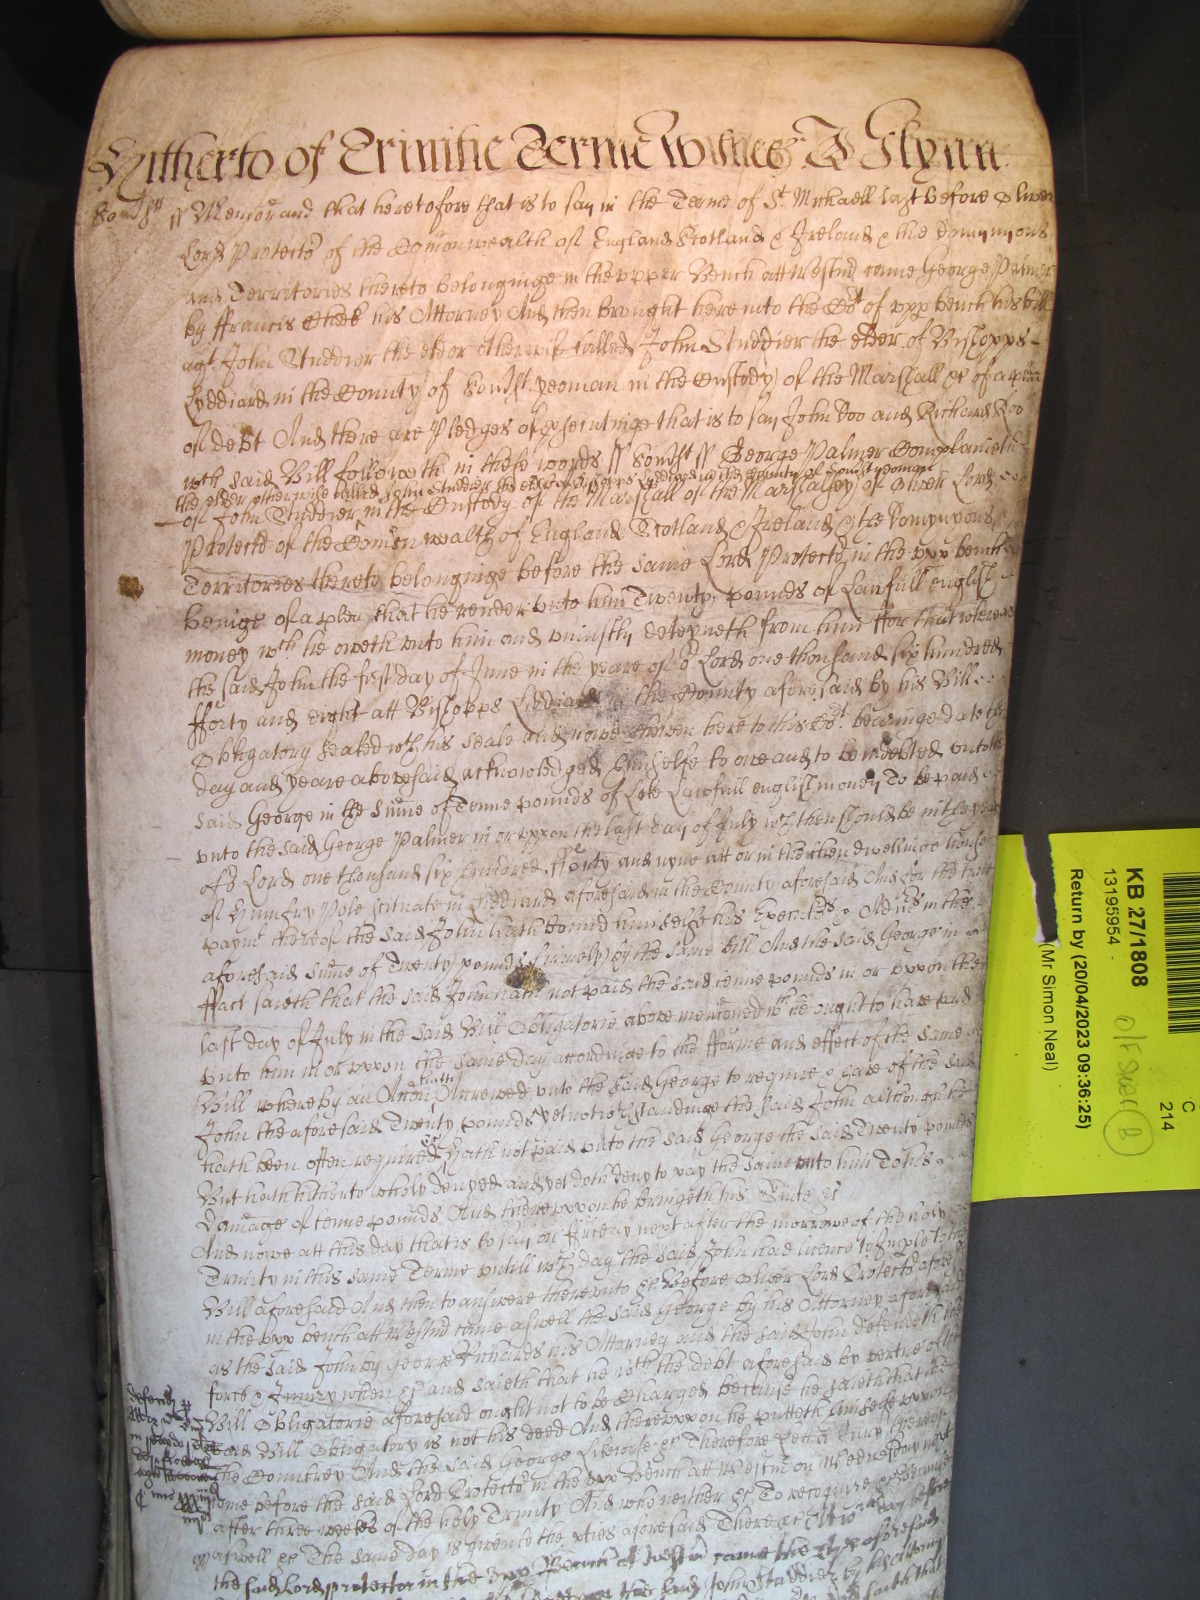 Hitherto of Trinitie Terme Witnes J Glynn
Somst ss Memorand that heretofore that is to say in the Terme of St Michaell last before Oliver
Lord Protector of the Comonwealth of England Scotland & Ireland & the dominions
and Territories thereto belonginge in the upper Bench att Westmr came George Palmer
by Ffrancis his Attorney And then brought here into the Cort of upp bench his bill
agt John Studdier the elder otherwise called John Studdier the elder of Bishopps
Lyddiard in the County of Somst yeoman in the Custody of the Marshall &c of a plea
of debt And there are Pledges of prosecutinge that is to say John Doo and Richard Roo
wch said Bill followeth in these words ss Somst ss George Palmer Complaineth
the elder otherwise called John Studdier the elder of Bishopps Lyddiard in the County of Somst yeoman
of John Studdier in the Custody of the Marshall of the Marshalsey of Oliver Lord
Protector of the Comon wealth of England Scotland & Ireland & the Dominions
Territories thereto belonginge before the same Lord Protector in the upp bench
beinge of a plea that he render unto him Twenty pounds of Lawfull english
money wch he oweth unto him and uniustly deteyneth from him ffor that whereas
the said John the first day of June in the yeare of or Lord one thousand six hundred
fforty and eight att Bishopps Lyddiard in the County aforesaid by his Bill
Obligatory sealed wth his seale and nowe shewen here to this Cort bearinge date the
day and yeare abovesaid acknowledged himselfe to owe and to be indebted unto the
said George in the Sume of Tenne pounds of like Lawfull english money To be paid
unto the said George Palmer in or uppon the last day of July wch then should be in the yeare
of or Lord one thousand six hundred fforty and nyne att or in the then dwellinge house
of Humfry Pole scituate in Lyddiard aforesaid in the County aforesaid And for the true
paymt thereof the said John hath bound himselfe his Executors & Admrs in the
aforesaid sume of Twenty pounds firmely by the same bill And the said George in
ffact saieth that the said John hath not paid the said tenne pounds in or uppon the
last day of July in the said Bill Obligatorie above mencioned wch he ought to have paid
unto him in or uppon the same day accordinge to the fforme and effect of the same
Bill whereby an Accion hath Accrewed unto the said George to require & have of the said
John the aforesaid Twenty pounds yet notwthstandinge the said John although he
hath been often required Hath not paid unto the said George the said Twenty pounds
But hath hitherto wholy denyed and yet doth deny to pay the same unto him To his
Damage of tenne pounds And thereuppon he bringeth his Suite &c
And nowe att this day that is to say on ffriday next after the morrowe of the holy
Trinity in this same Terme untill wch day the said John had licence to Imple to the
Bill aforesaid And then to answere thereunto &c Before Oliver Lord Protector aforesaid
in the upp bench att Westmr came aswell the said George by his Attorney aforesaid
as the said John by George Richards his Attorney and the said John defendeth the
force & Iniury when &c and saieth that he with the debt aforesaid by vertue of the
Bill Obligatorie aforesaid ought not to be Charged because he saieth that the
said Bill Obligatory is not his deed And thereuppon he putteth himselfe uppon
the Countrey And the said George Likewise &c Therefore Lett a Jury thereof
come before the said Lord Protector in the upp Bench att Westmr on Wednesday next
after three weekes of the holy Trinity And who neither &c To recognize &c Because
aswell &c The same day is given to the pties aforesaid There &c Att wch day before
the said Lord protector in the upp Bench att Westmr came the ptyes aforesaid
the said John Studdier by his Attorney
saith that
KB 27/1808
13195954
Return by (20/04/2023 09:36:25)
(Mr Simon Neal)
C
214
B